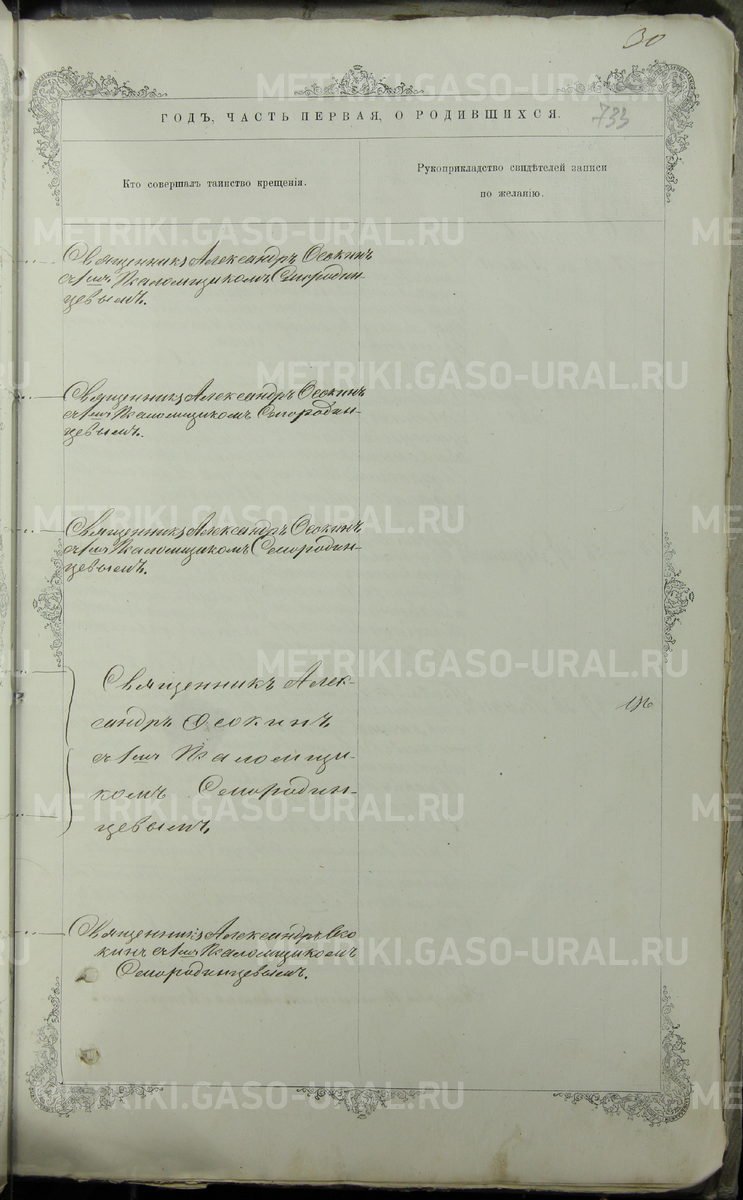 30
ГОДЪ, ЧАСТЬ ПЕРВАЯ, О РОДИВШИХСЯ.
733
Кто совершалъ таинство крещенія.
Рукоприкладство свидѣтелей записи
по желанію.
Священникъ Александръ Осокинъ
съ 1мъ Псаломщикомъ Смородин-
цевымъ.
Священникъ Александръ Осокинъ
съ 1мъ Псаломщикомъ Смородин-
цевымъ.
Священникъ Александръ Осокинъ
съ 1мъ Псаломщикомъ Смородин-
цевымъ.
Священникъ Алек-
сандръ Осокинъ
съ 1мъ Псаломщи-
комъ Смородин-
цевымъ,
Священникъ Александръ Осо
кинъ съ 1мъ Псаломщикомъ
Смородинцевымъ.
METRIKI.GASO-URAL.RU